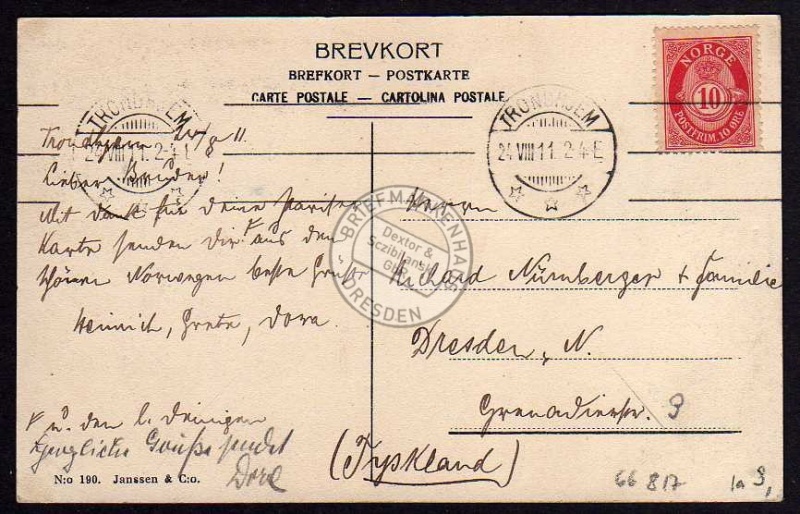 BREVKORT
BREFKORT — POSTKARTE
CARTE POSTALE — CARTOLINA POSTALE
NORGE
10
POSTFRIM. 10 ØRE
TRONDHJEM
24 VIII 11. 2-4 E
TRONDHJEM
24 VIII 11. 2-4 E
Trondhjem 24/8 11
Lieber Bruder!
Mit Dank für deine Pariser
Karte senden Dir aus den
schönen Norwegen beste Grüße
Heinrich, Greta, Dora.
u. den l. Deinigen
Grüße sendet
Herrn
Richard Nürnberger + Familie
Dresden, N.
Grenadierstr. 3
(Tyskland)
BRIEFMARKENHAUS
Dextor &
Sczibilanski
GbR
DRESDEN
N:o 190. Janssen & C:o.
66 817
1a 9,